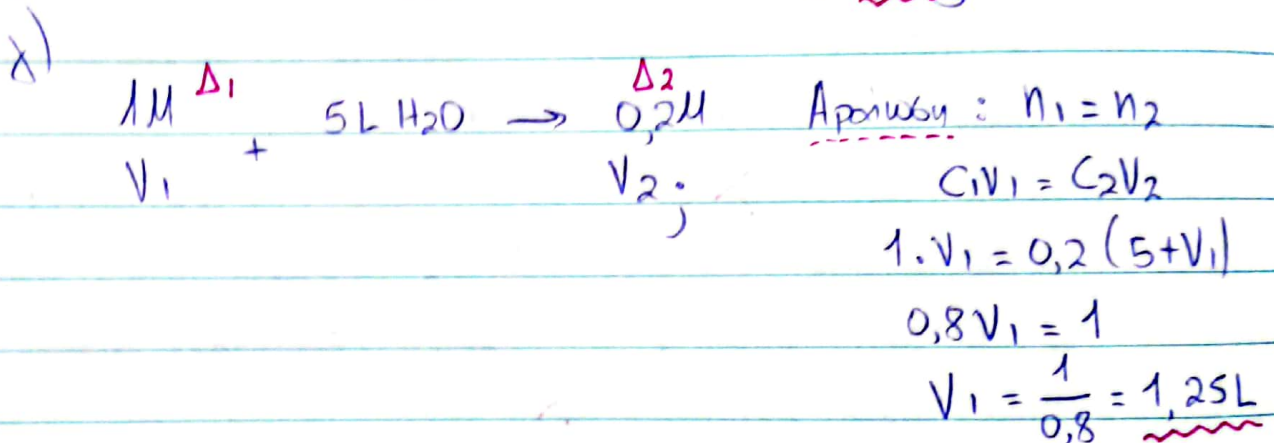 γ)
Δ1 Δ2
1M + 5L H2O → 0,2M Αραίωση : n1 = n2
V1 V2; C1V1 = C2V2
1.V1 = 0,2 (5+V1)
0,8V1 = 1
V1 = 1/0,8 = 1,25L